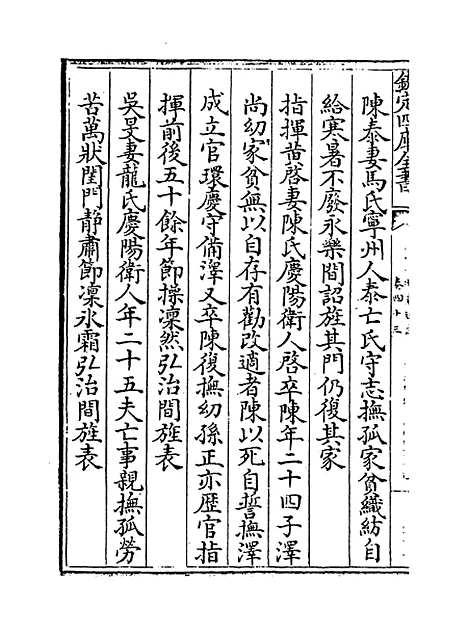 欽定四庫全書
卷四十三
陳泰妻馬氏寧州人泰亡氏守志撫孤家貧織紡自
給寒暑不廢永樂間詔旌其門仍復其家
指揮黃啓妻陳氏慶陽衛人啓卒陳年二十四子澤
尚幼家貧無以自存有勸改適者陳以死自誓撫澤
成立官環慶守備澤又卒陳復撫幼孫正亦歴官指
揮前後五十餘年節操凜然弘治間旌表
吳旻妻龍氏慶陽衛人年二十五夫亡事親撫孤勞
苦萬狀閨門静肅節凜氷霜弘治間旌表